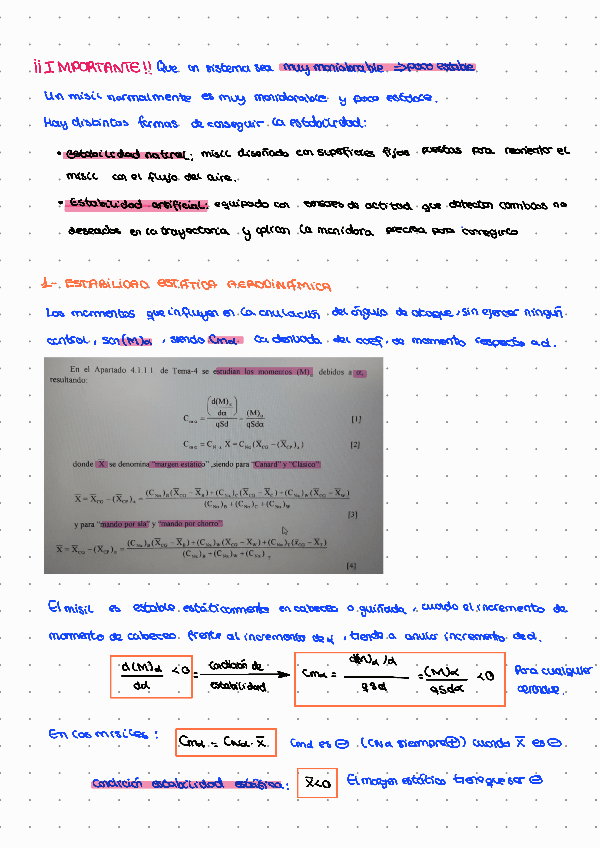 ¡¡IMPORTANTE!! Que un sistema sea muy maniobrable => poco estable.
Un misil normalmente es muy maniobrable y poco estable.
Hay distintas formas de conseguir la estabilidad:
• Estabilidad natural: misil diseñado con superficies fijas puestas para reorientar el
misil con el flujo del aire.
• Estabilidad artificial: equipado con sensores de actitud que detectan cambios no
deseados en la trayectoria y aplican la maniobra precisa para corregirlo
1- ESTABILIDAD ESTÁTICA AERODINÁMICA
Los momentos que influyen en la anulación del ángulo de ataque, sin ejercer ningún
control, son (M)α, siendo Cmα la derivada del coef. de momento respecto a α.
En el Apartado 4.1.1.1 de Tema-4 se estudian los momentos (M)α debidos a α,
resultando:
Cmα = (d(M)α/dα)/qSd = (M)α/qSdα [1]
Cmα = CNα X̄ = CNα (X̄CG − (X̄CP)α) [2]
donde X̄ se denomina "margen estático", siendo para "Canard" y "Clásico"
X̄ = X̄CG − (X̄CP)α = ((CNα)B(X̄CG − X̄B) + (CNα)C(X̄CG − X̄C) + (CNα)W(X̄CG − X̄W))/((CNα)B + (CNα)C + (CNα)W)
[3]
y para "mando por ala" y "mando por chorro"
X̄ = X̄CG − (X̄CP)α = ((CNα)B(X̄CG − X̄B) + (CNα)W(X̄CG − X̄W) + (CNα)T(X̄CG − X̄T))/((CNα)B + (CNα)W + (CNα)T)
[4]
El misil es estable estáticamente en cabeceo o guiñada, cuando el incremento de
momento de cabeceo frente al incremento de α, tiende a anular incremento de α.
d(M)α/dα < 0 = condición de estabilidad → Cmα = (d(M)α/dα)/qSd = (M)α/qSdα < 0 Para cualquier
En los misiles: Cmα = CNα · X̄ Cmα es ⊖ (CNα siempre ⊕) cuando X̄ es ⊖.
Condición estabilidad estática: X̄<0 El margen estático tiene que ser ⊖